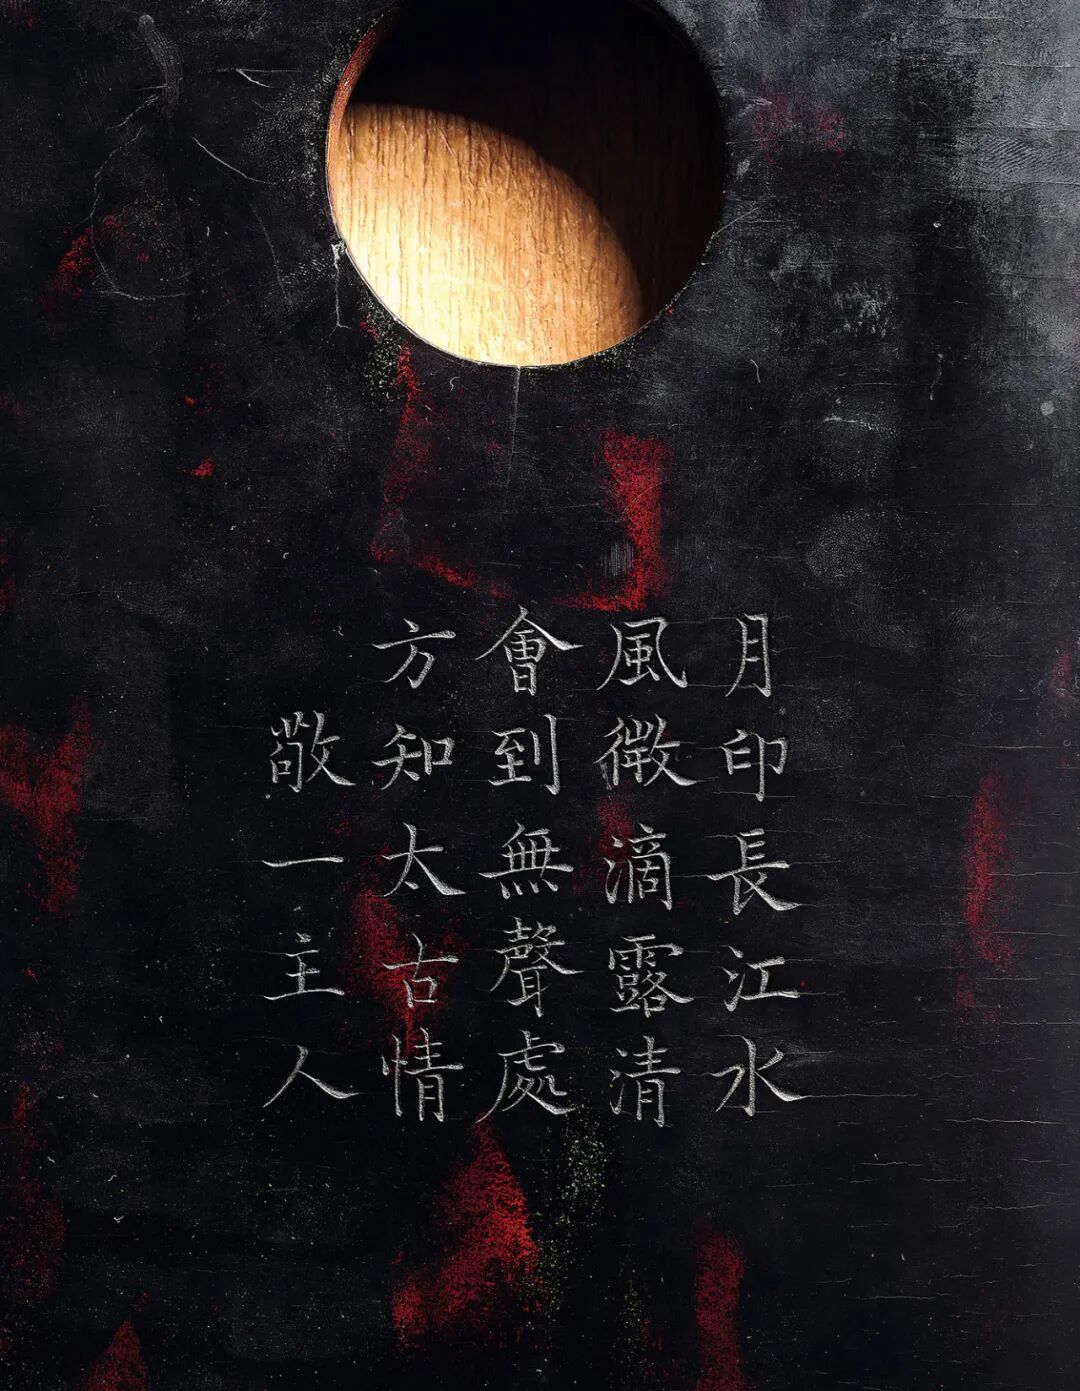 月印長江水
風微滴露清
會到無聲處
方知太古情
敬一主人